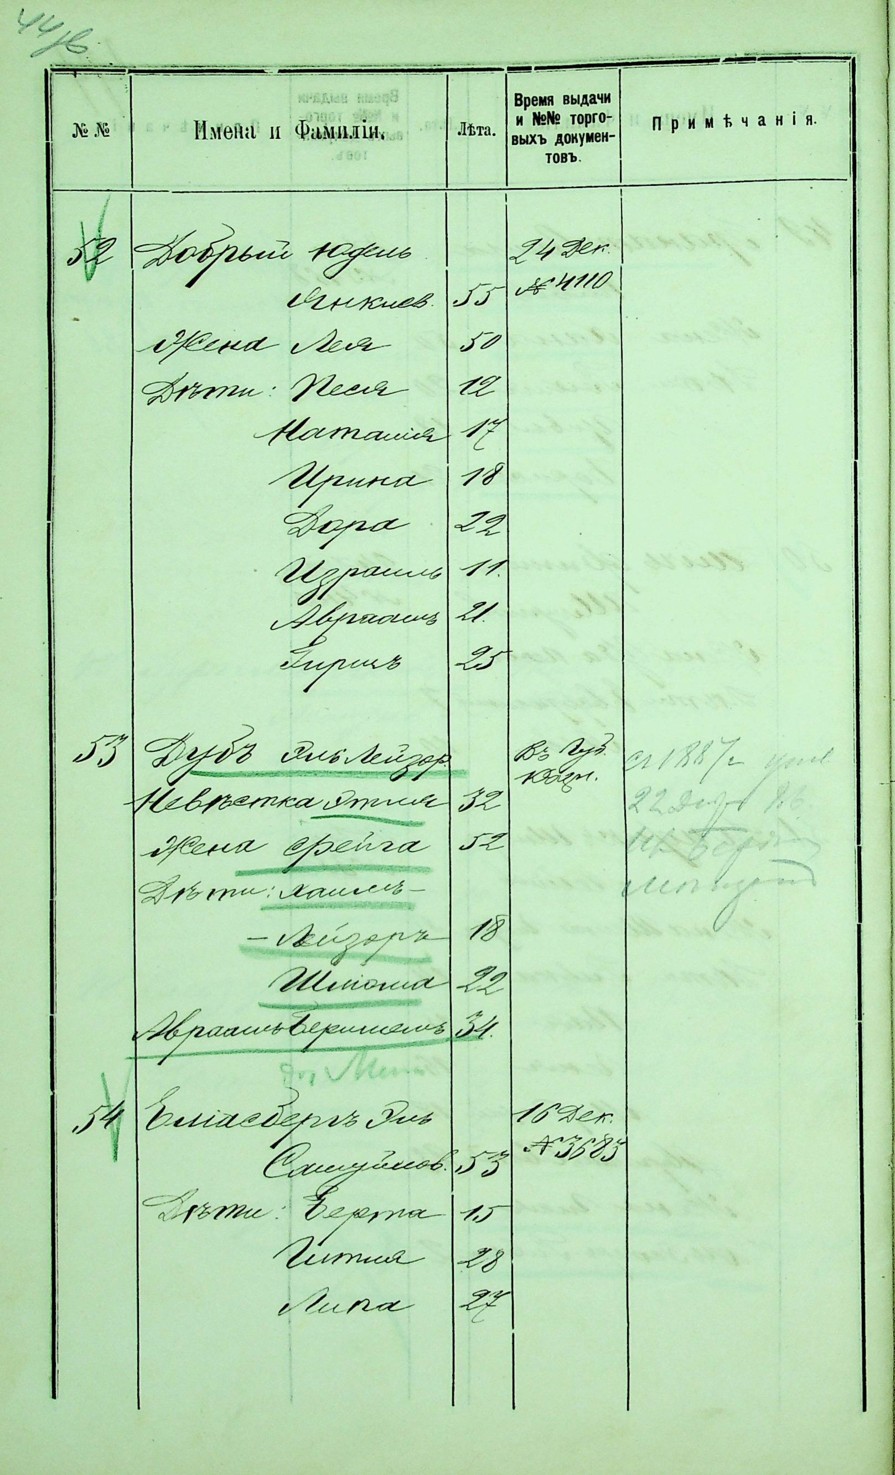 44 об
№ №
Имена и Фамиліи.
Лѣта.
Время выдачи
и №№ торго-
выхъ докумен-
товъ.
Примѣчанія.
52 Добрый Юдель 24 Дек.
Янкелев. 55 № 4110
Жена Лея 50
Дѣти: Песя 12
Наталія 17
Ирина 18
Дора 22
Израиль 11.
Авраамъ 21.
Гиршъ 25
53 Дубъ Эль Лейзор. Въ Губ.
Казн.
Невѣстка Этля 32
Жена Фрейга 52
Дѣти: Хаимъ –
– Лейзоръ 18
Шлюма 22
Авраамъ Беришемъ 34.
54 Еліасбергъ Эль 16 Дек.
Самуйлов. 53 № 3683
Дѣти: Берта 15
Гитля 28
Липа 27